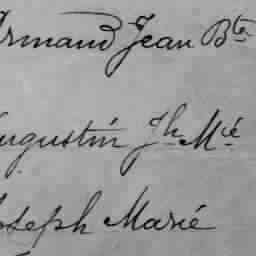 Armand Jean Bte
Augustin Jh Mié
Joseph Marié